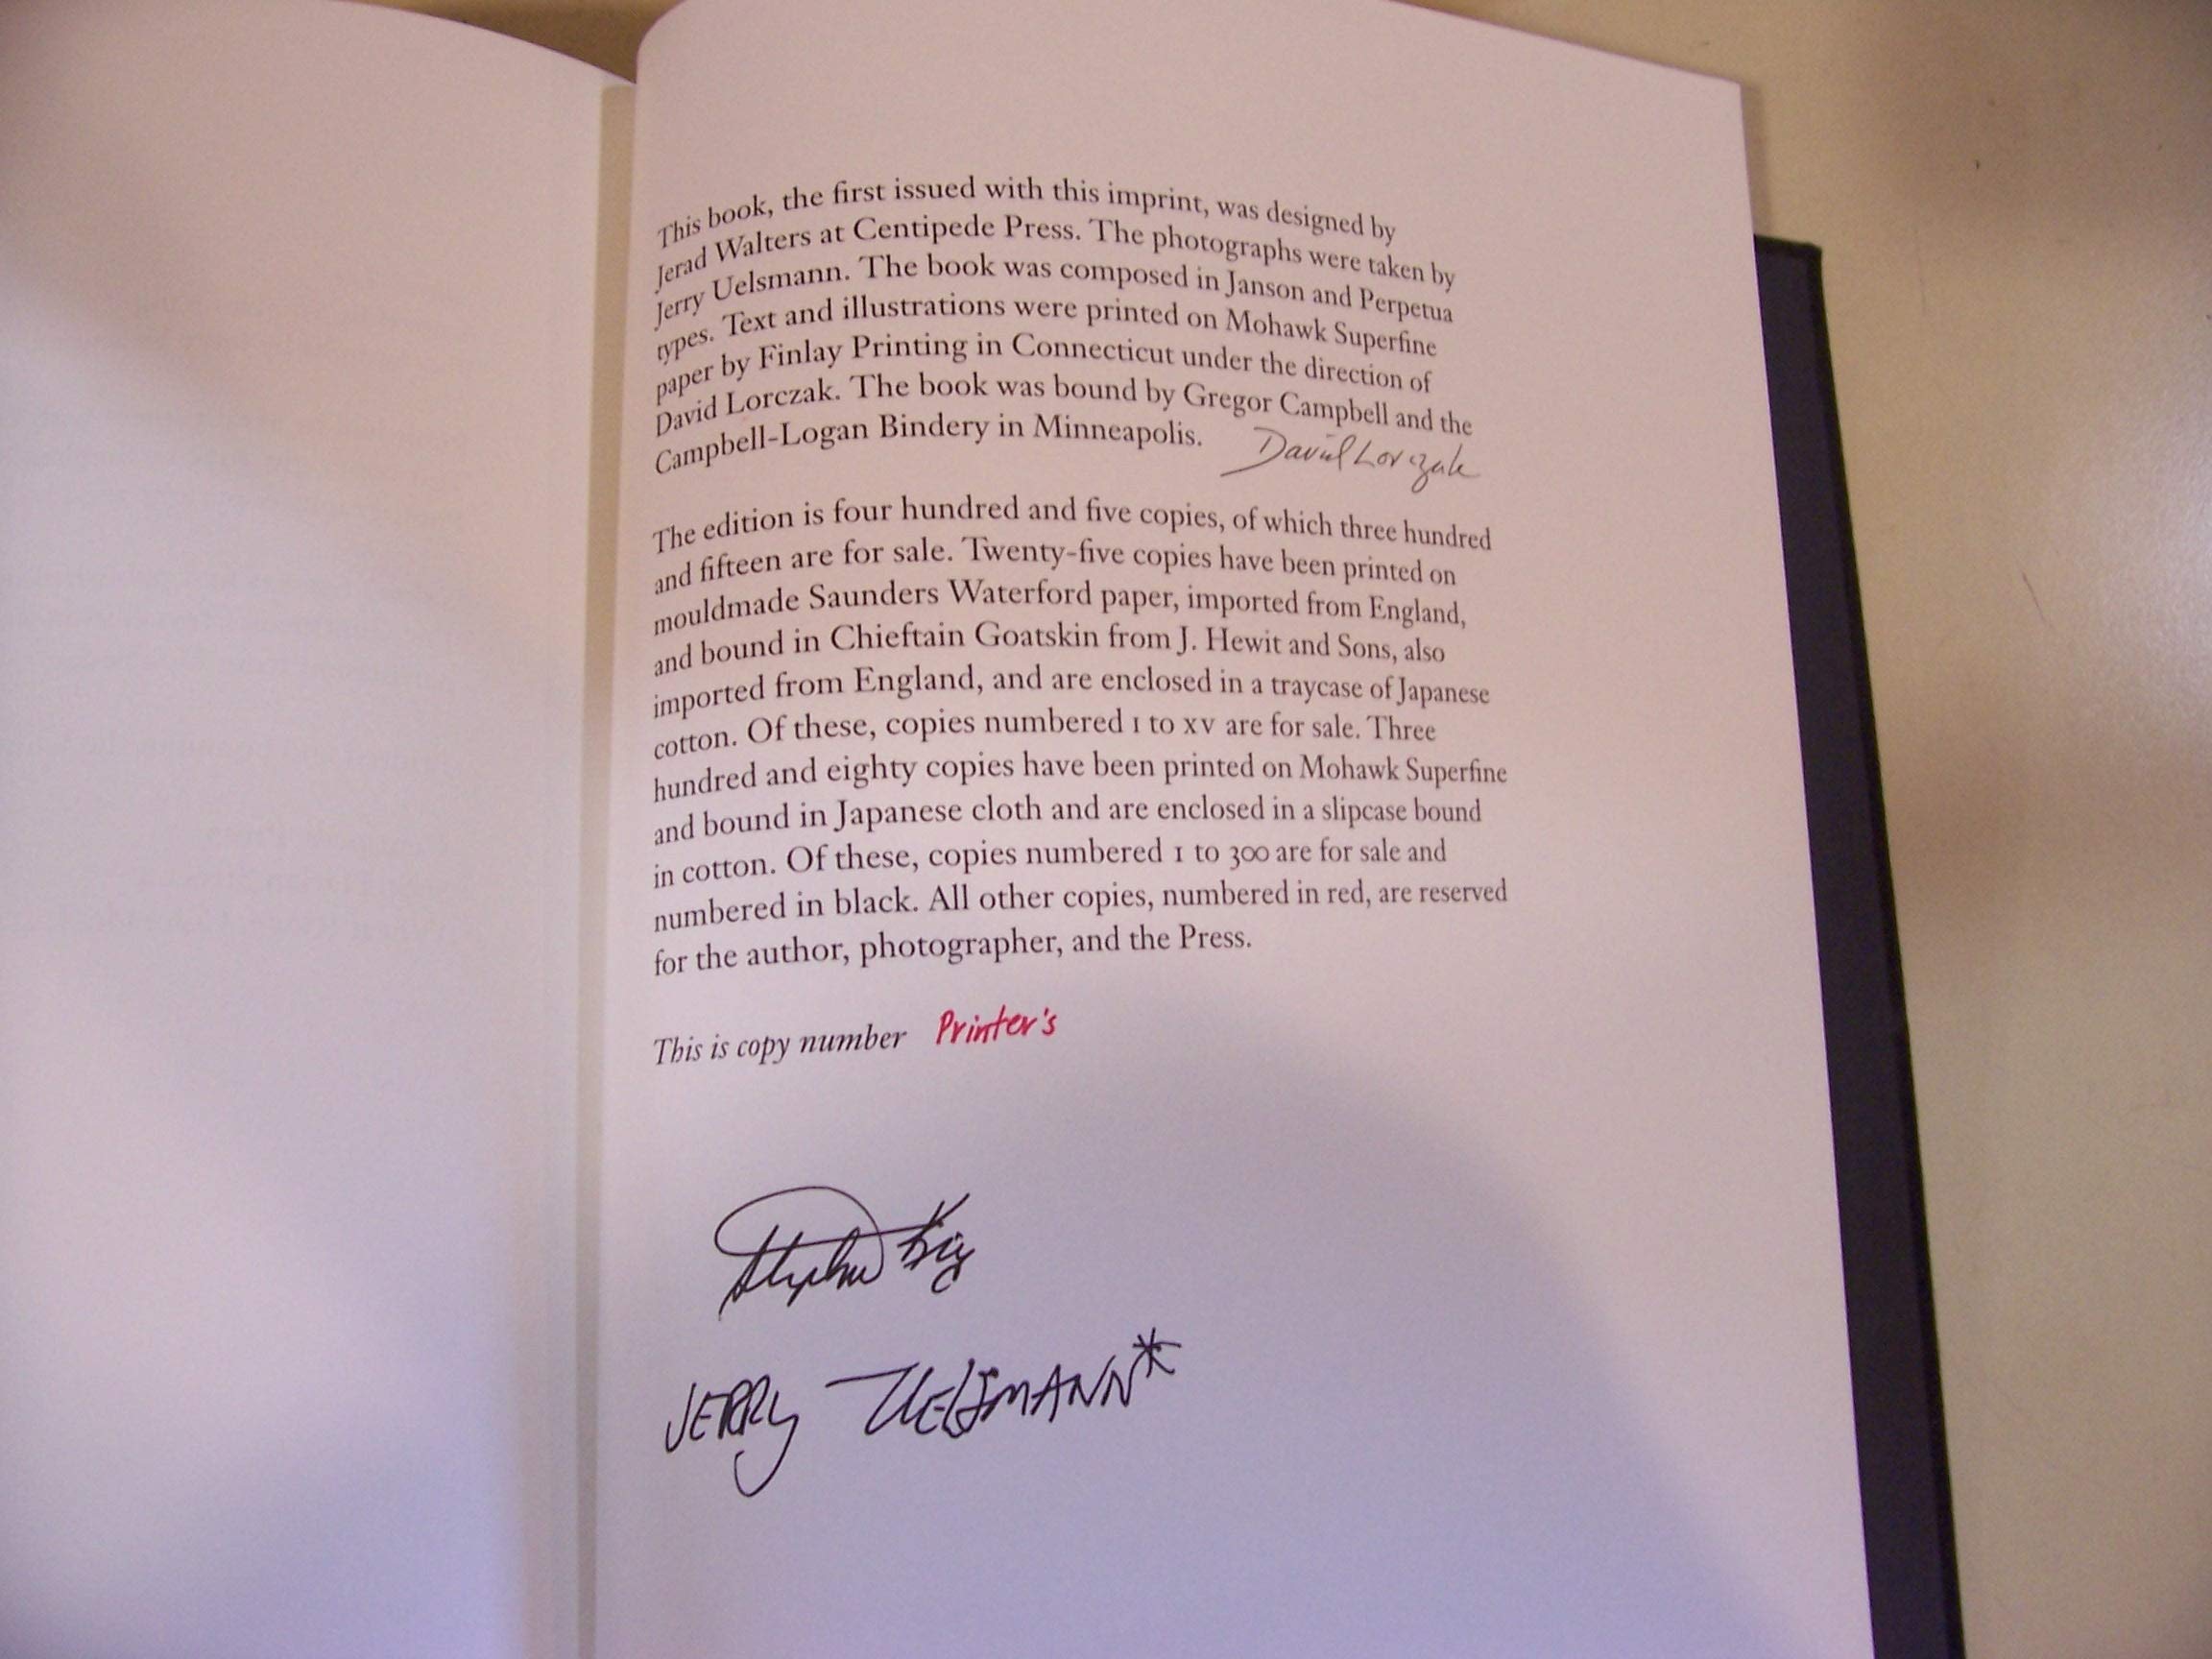 This book, the first issued with this imprint, was designed by
Jerad Walters at Centipede Press. The photographs were taken by
Jerry Uelsmann. The book was composed in Janson and Perpetua
types. Text and illustrations were printed on Mohawk Superfine
paper by Finlay Printing in Connecticut under the direction of
David Lorczak. The book was bound by Gregor Campbell and the
Campbell-Logan Bindery in Minneapolis. David Lorczak
The edition is four hundred and five copies, of which three hundred
and fifteen are for sale. Twenty-five copies have been printed on
mouldmade Saunders Waterford paper, imported from England,
and bound in Chieftain Goatskin from J. Hewit and Sons, also
imported from England, and are enclosed in a traycase of Japanese
cotton. Of these, copies numbered I to XV are for sale. Three
hundred and eighty copies have been printed on Mohawk Superfine
and bound in Japanese cloth and are enclosed in a slipcase bound
in cotton. Of these, copies numbered 1 to 300 are for sale and
numbered in black. All other copies, numbered in red, are reserved
for the author, photographer, and the Press.
This is copy number Printer's
Stephen King
JERRY UELSMANN*